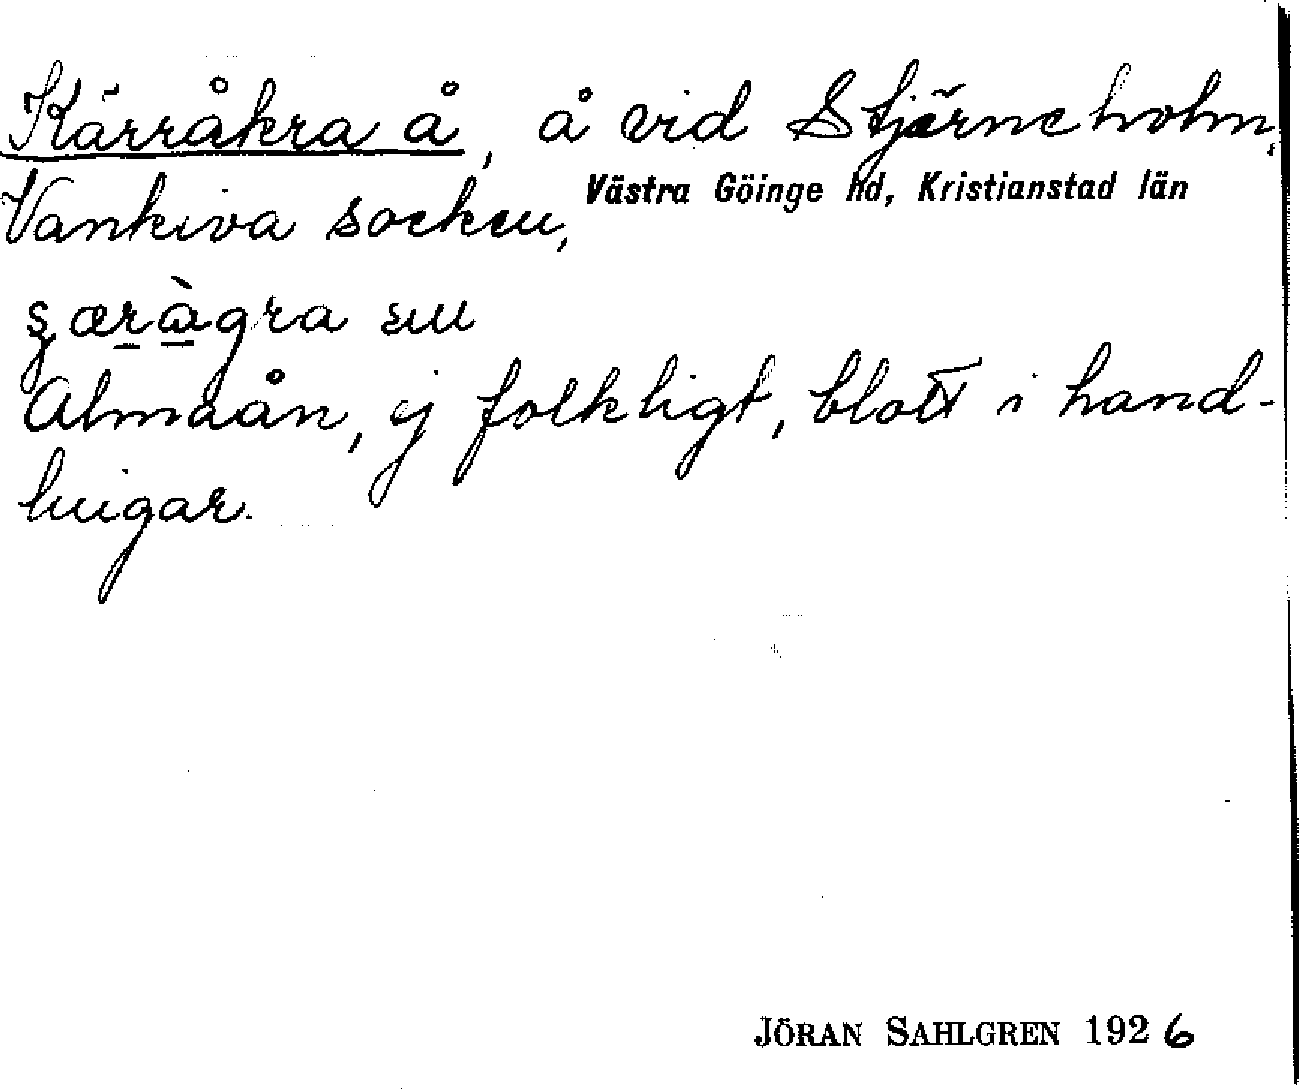 Kärråkra å, å vid Stjärneholm,
Västra Göinge hd, Kristianstad län
Vankiva socken,
Almaån, ej folkligt, blott i hand-
lingar.
JÖRAN SAHLGREN 1926